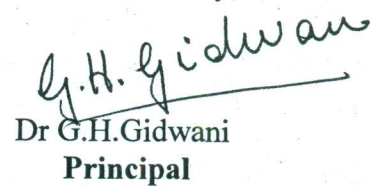 G.H. Gidwani
Dr G.H.Gidwani
Principal